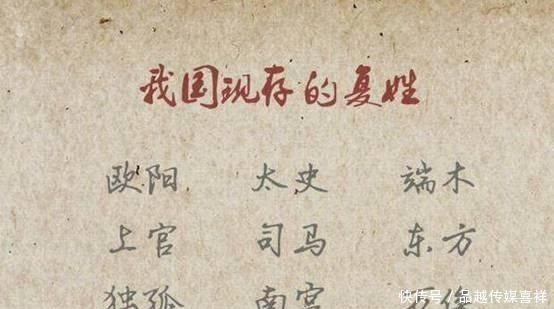 我国现存的复姓
欧阳 太史 端木
上官 司马 东方
独孤 南宫
快传号/品越传媒喜祥